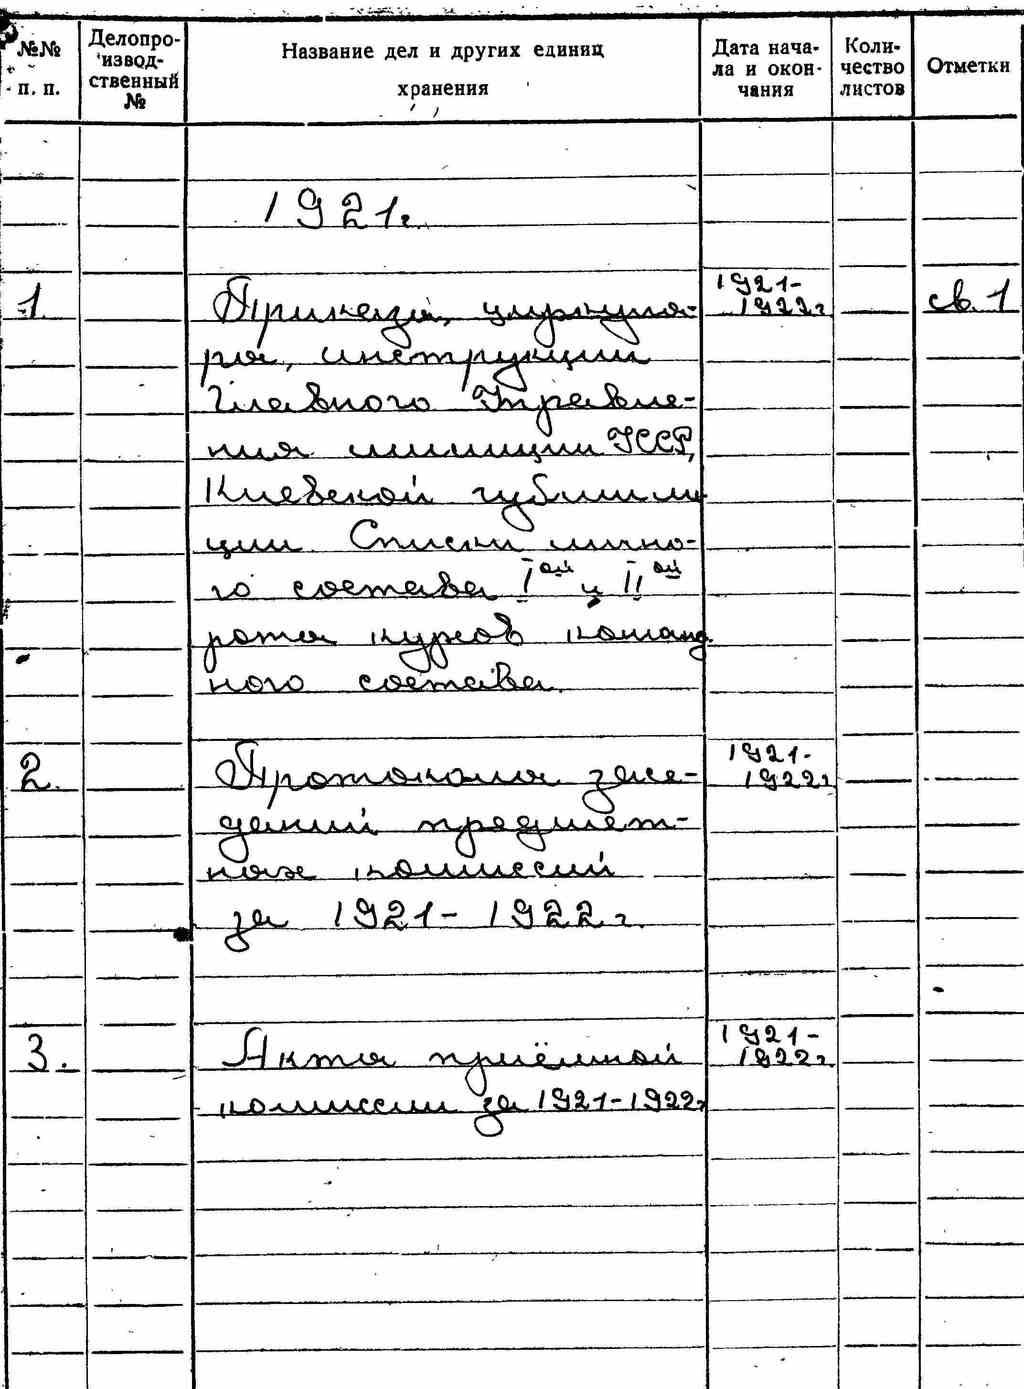 №№ п. п.
Делопроизводственный №
Название дел и других единиц хранения
Дата начала и окончания
Количество листов
Отметки
1921г.
1. Приказы, циркуля- 1921- св. 1
ры, инструкции 1922г.
Главного Управле-
ния милиции УССР,
Киевской губмили
ции. Списки лично-
го состава I ой и II ой
роты курсов команд
ного состава.
2. Протоколы засе- 1921-
даний предмет- 1922г.
ных комиссий
за 1921-1922г.
3. Акты приёмной 1921-
комиссии за 1921-1922г 1922г.